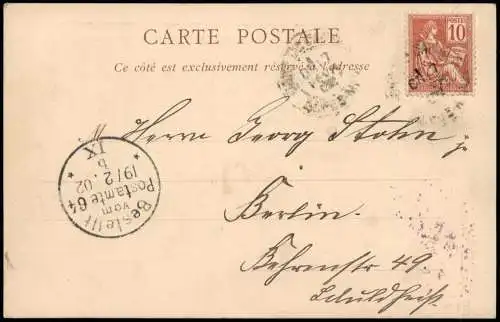 CARTE POSTALE
Ce côté est exclusivement réservé à l'adresse
POSTES
10
Herrn Georg Stohn
Berlin.
Behrenstr 49.
Schultheis
Bestellt
vom
Postamte 64
19/2.02
b
IX